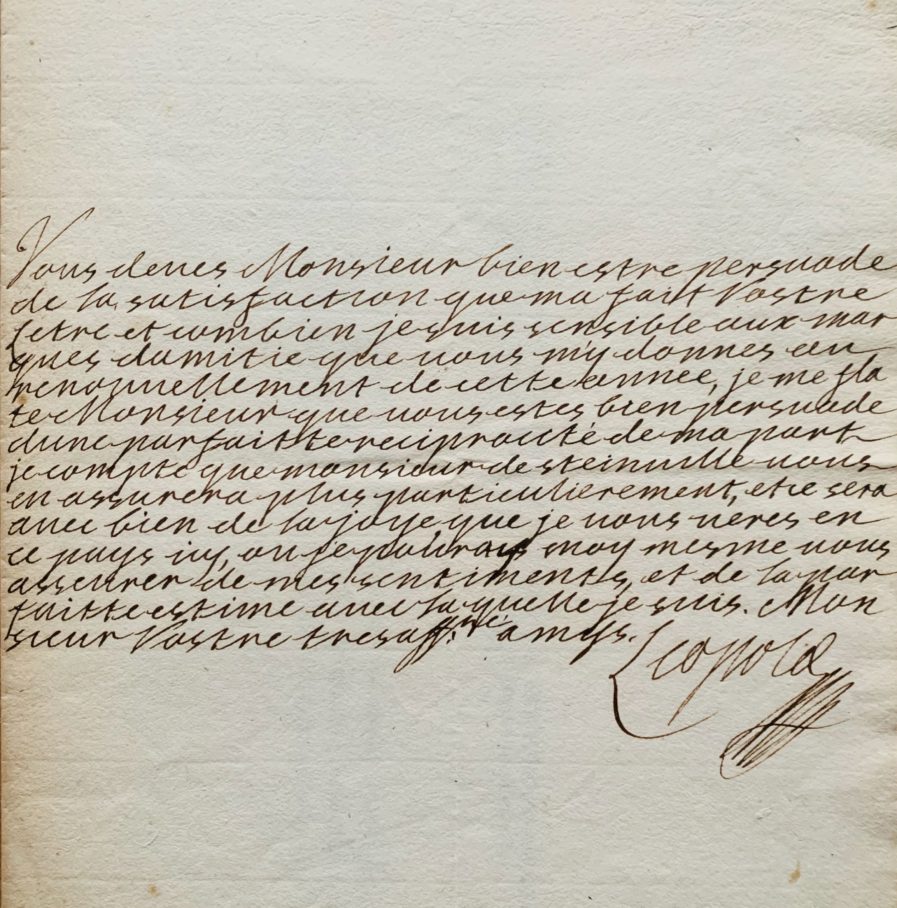 Vous deves Monsieur bien estre persuade
de la satisfaction que ma fait Vostre
Letre et combien je suis sensible aux mar
ques damitie que vous my donnes au
renouuellement de cette annee, je me fla
te Monsieur que vous estes bien persuade
dune parfaitte reciprocité de ma part
je compte que monsieur de steinuille vous
en assurera plus particulierement, et ce sera
avec bien de la joye que je vous veres en
ce pays icy, ou je pourais moy mesme vous
asseurer de mes sentiments, et de la par
faitte estime avec la quelle je suis. Mon
sieur Vostre tres aff.ne amys.
Leopold